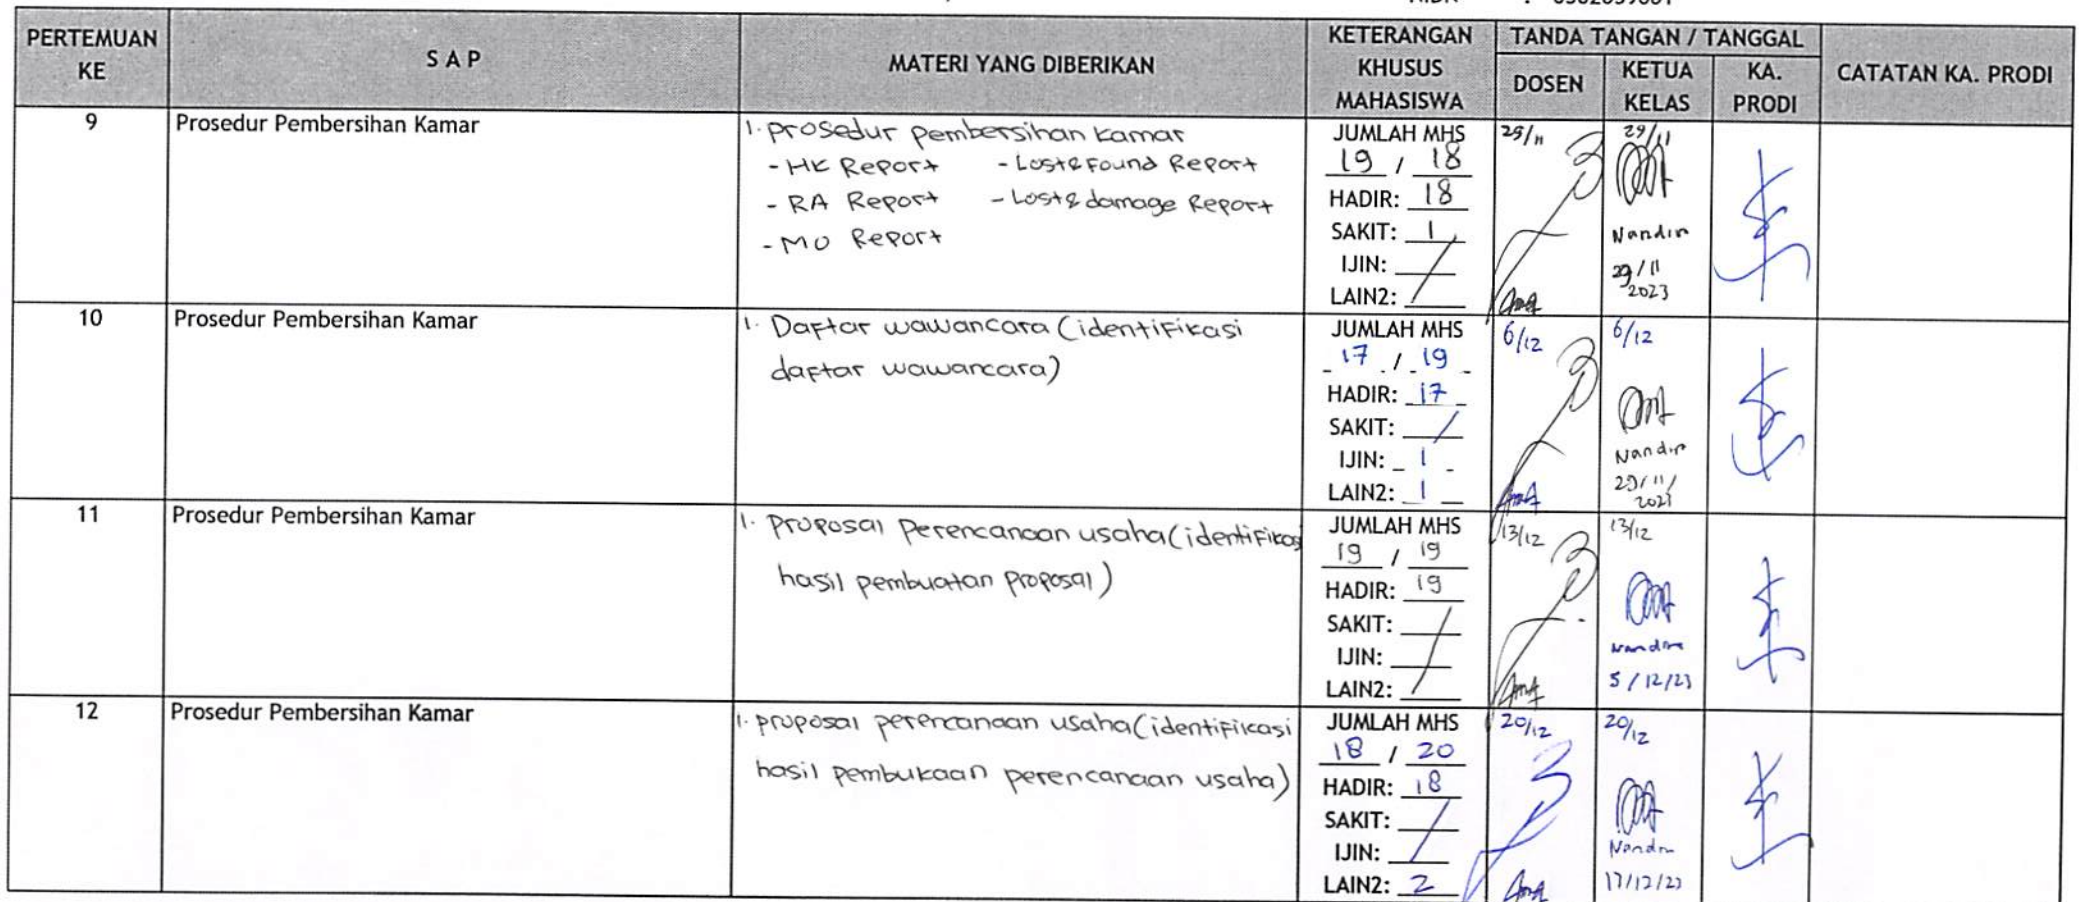 PERTEMUAN KE
S A P
MATERI YANG DIBERIKAN
KETERANGAN KHUSUS MAHASISWA
TANDA TANGAN / TANGGAL
DOSEN
KETUA KELAS
KA. PRODI
CATATAN KA. PRODI
9
Prosedur Pembersihan Kamar
1. prosedur pembersihan kamar
- HK Report - Lost & Found Report
- RA Report - Lost & damage Report
- MO Report
JUMLAH MHS
19 / 18
HADIR: 18
SAKIT: 1
IJIN:
LAIN2:
29/11
29/11
Nandin
29/11
2023
10
Prosedur Pembersihan Kamar
1. Daftar wawancara (identifikasi
daftar wawancara)
JUMLAH MHS
17 / 19
HADIR: 17
SAKIT:
IJIN: 1
LAIN2: 1
6/12
6/12
Nandin
29/11/
2023
11
Prosedur Pembersihan Kamar
1. Proposal perencanaan usaha (identifikasi
hasil pembuatan proposal)
JUMLAH MHS
19 / 19
HADIR: 19
SAKIT:
IJIN:
LAIN2:
13/12
13/12
Nandin
5/12/23
12
Prosedur Pembersihan Kamar
1. proposal perencanaan usaha (identifikasi
hasil pembukaan perencanaan usaha)
JUMLAH MHS
18 / 20
HADIR: 18
SAKIT:
IJIN:
LAIN2: 2
20/12
20/12
Nandin
17/12/23